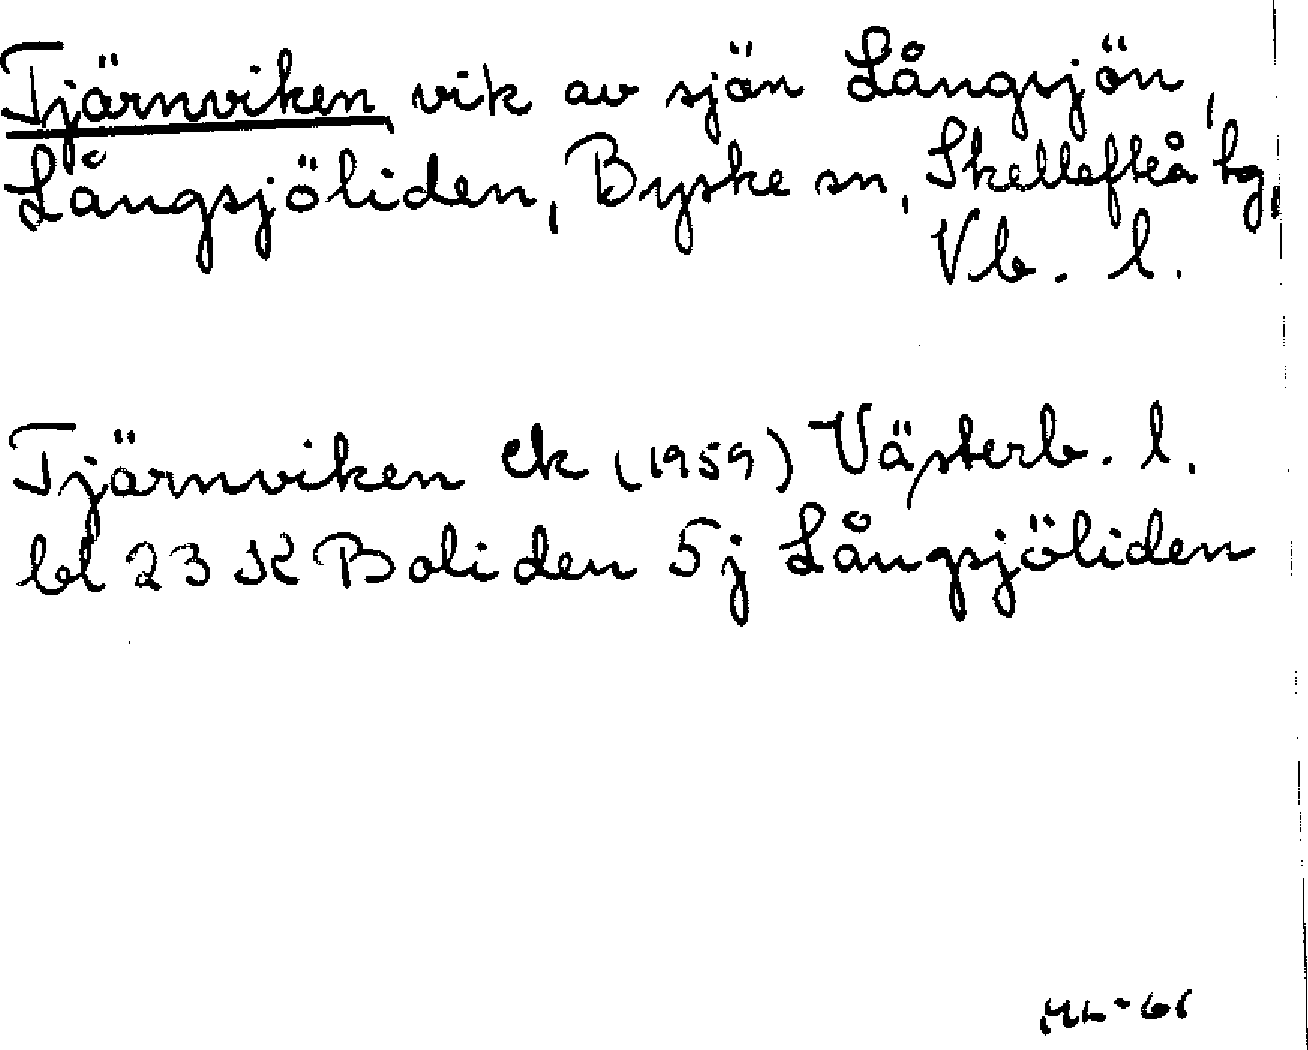 Tjärnviken, vik av sjön Långsjön,
Långsjöliden, Byske sn, Skellefteå tg,
Vb. l.
Tjärnviken ek (1959) Västerb. l.
bl 23 K Boliden 5j Långsjöliden